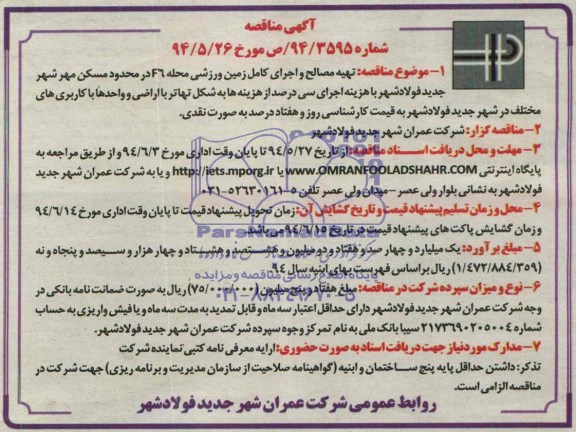 آگهی مناقصه
شماره ۹۴/۳۵۹۵/ص مورخ ۹۴/۵/۲۶
۱- موضوع مناقصه: تهیه مصالح و اجرای کامل زمین ورزشی محله F۶ در محدوده مسکن مهر شهر
جدید فولادشهر با هزینه اجرای سی درصد از هزینه ها به شکل تهاتر با اراضی و واحدها با کاربری های
مختلف در شهر جدید فولادشهر به قیمت کارشناسی روز و هفتاد درصد به صورت نقدی.
۲- مناقصه گزار: شرکت عمران شهر جدید فولادشهر
۳- مهلت و محل دریافت اسناد مناقصه: از تاریخ ۹۴/۵/۲۷ تا پایان وقت اداری مورخ ۹۴/۶/۳ و از طریق مراجعه به
پایگاه اینترنتی WWW.OMRANFOOLADSHAHR.COM یا http://iets.mporg.ir و یا به شرکت عمران شهر جدید
فولادشهر به نشانی بلوار ولی عصر - میدان ولی عصر تلفن ۵-۰۳۱-۵۲۶۳۰۱۶۱
۴- محل و زمان تسلیم پیشنهاد قیمت و تاریخ گشایش آن: زمان تحویل پیشنهاد قیمت تا پایان وقت اداری مورخ ۹۴/۶/۱۴
و زمان گشایش پاکت های پیشنهاد قیمت در تاریخ ۹۴/۶/۱۵ می باشد.
۵- مبلغ برآورد: یک میلیارد و چهار صد و هفتاد و دو میلیون و هشتصد و هشتاد و چهار هزار و سیصد و پنجاه و نه
(۱/۴۷۲/۸۸۴/۳۵۹) ریال بر اساس فهرست بهای ابنیه سال ۹۴
۶- نوع و میزان سپرده شرکت در مناقصه: مبلغ هفتاد و پنج میلیون (۷۵/۰۰۰/۰۰۰) ریال به صورت ضمانت نامه بانکی در
وجه شرکت عمران شهر جدید فولادشهر دارای حداقل اعتبار سه ماه و قابل تمدید به مدت سه ماه و یا فیش واریزی به حساب
شماره ۲۱۷۳۶۹۰۲۰۵۰۰۴ سیبا بانک ملی به نام تمرکز وجوه سپرده شرکت عمران شهر جدید فولادشهر.
۷- مدارک مورد نیاز جهت دریافت اسناد به صورت حضوری: ارایه معرفی نامه کتبی نماینده شرکت
تذکر: داشتن حداقل پایه پنج ساختمان و ابنیه (گواهینامه صلاحیت از سازمان مدیریت و برنامه ریزی) جهت شرکت در
مناقصه الزامی است.
روابط عمومی شرکت عمران شهر جدید فولادشهر
پایگاه اطلاع رسانی مناقصه و مزایده